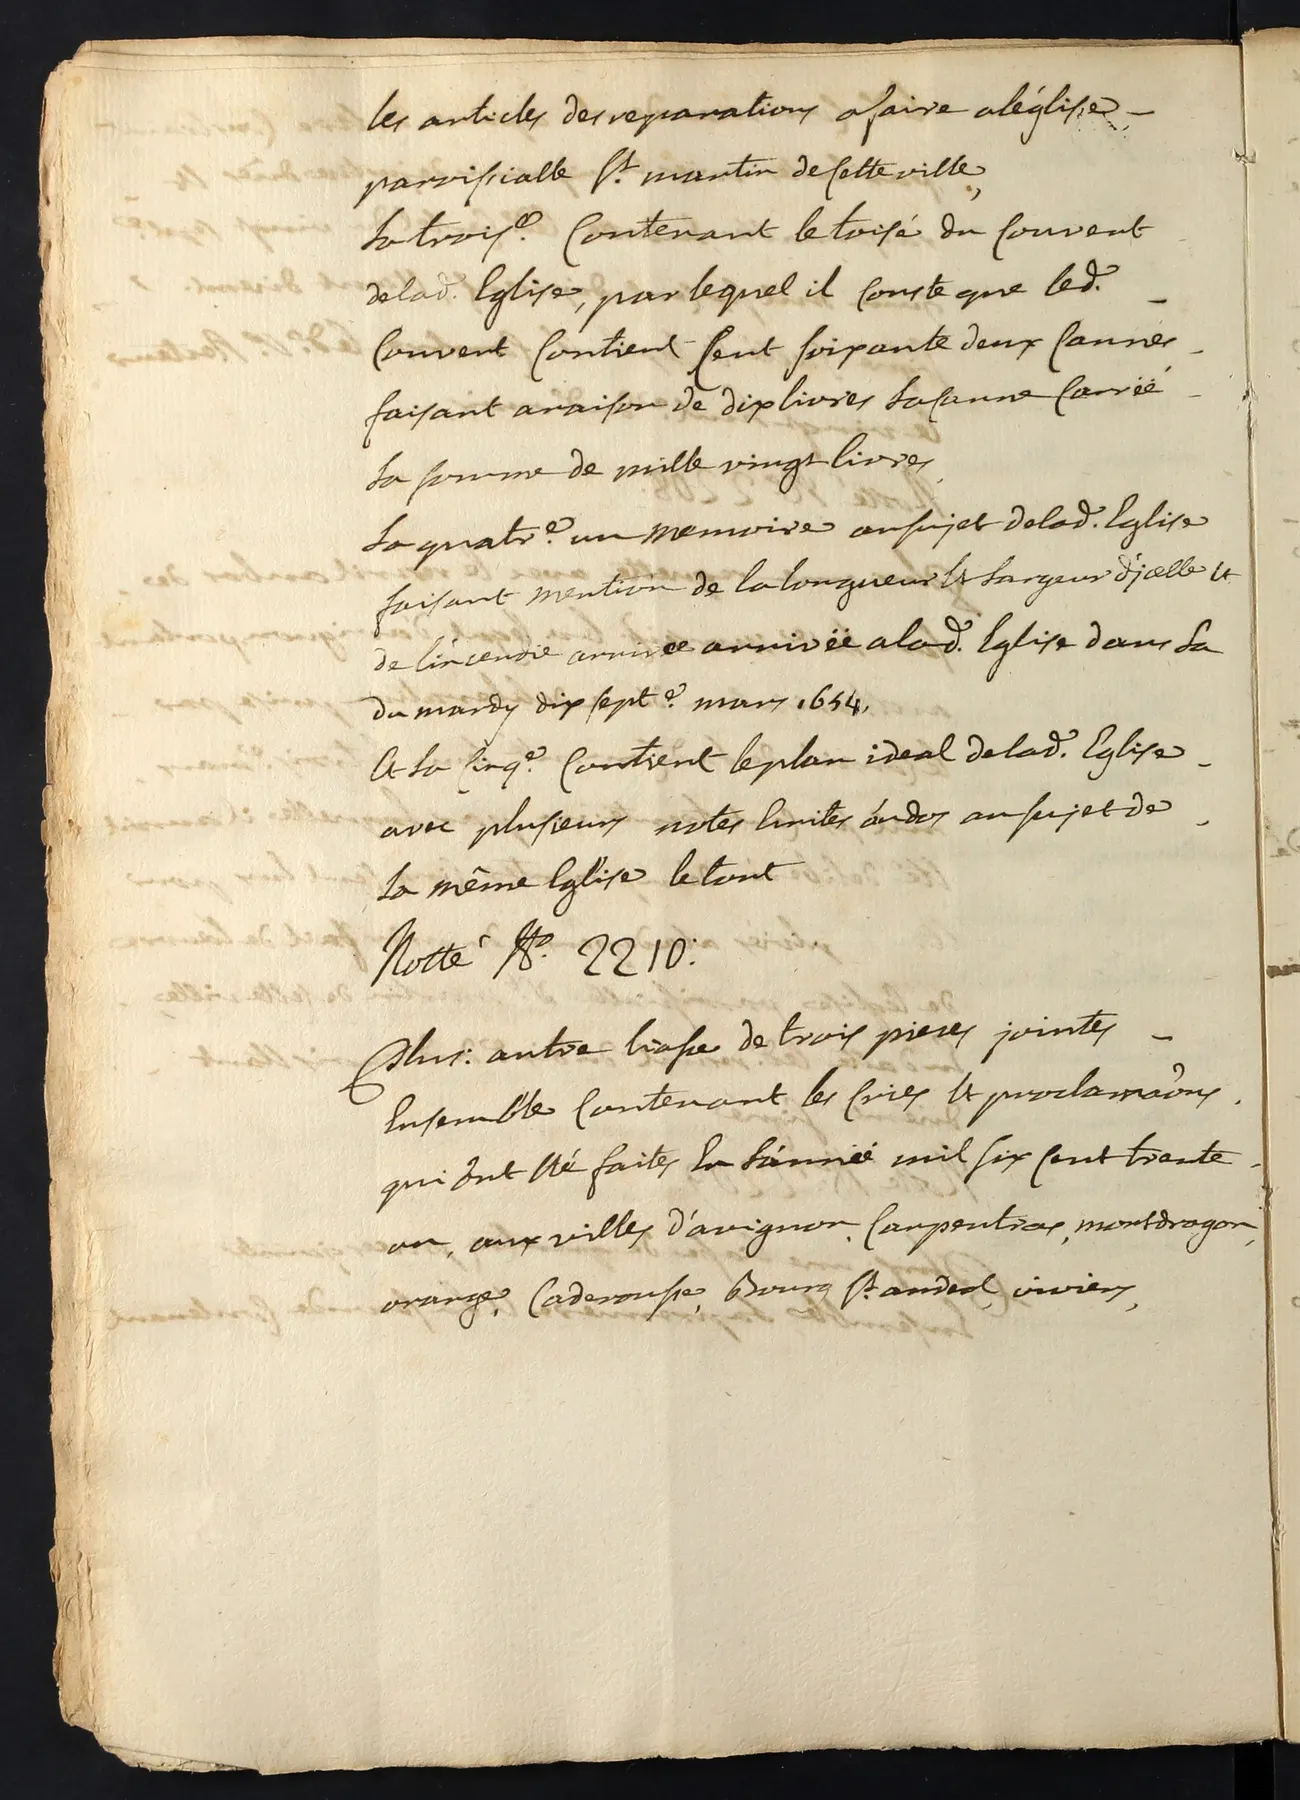 les articles des reparations a faire a léglise
parroissialle St. martin de Cette ville,
La troise. Contenant le toisé du Couvert
de lad. Eglise, par lequel il Conste que led.
Couvert Contient Cent soixante deux Cannes
faisant a raison de dix livres La Canne Carréé
La somme de mille vingt livres,
La quatre. un memoire au sujet de lad. Eglise
faisant mention de la longueur Et Largeur d'jcelle Et
de l'incendie arrivee arrivéë a lad. Eglise dans La
du mardy dix septe. mars 1654,
Et La Cinqe. Contient le plan ideal de lad. Eglise
avec plusieurs notes Ecrites au dos au sujet de
La même Eglise le tout
Notté No. 2210:
Plus: autre liasse de trois pieces jointes
Ensemble Contenant les Cries Et proclamaõns
qui ont Eté faites En L'annéé mil six Cent trente
un, aux villes d'avignon, Carpentras, montdragon,
orange, Caderousse, Bourg St. andeol, viviers,